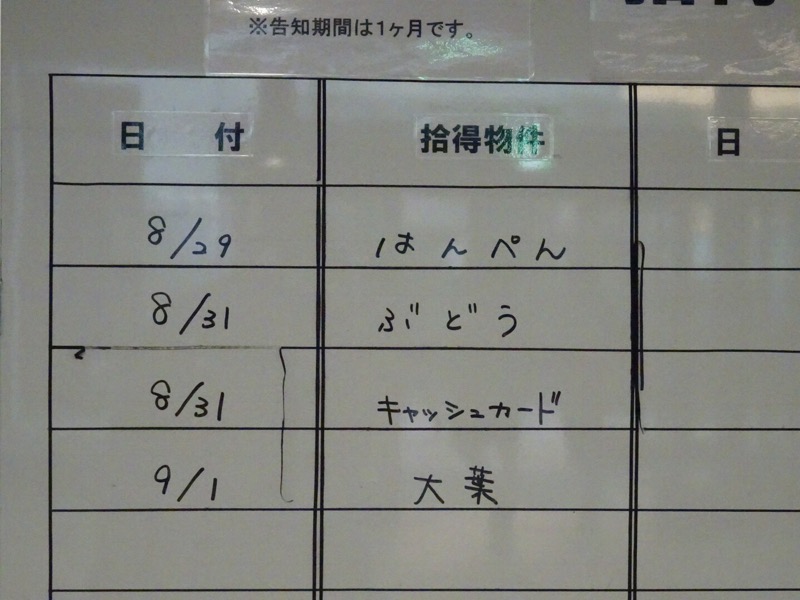 ※告知期間は1ヶ月です。
日 付 拾得物件 日
8/29 はんぺん
8/31 ぶどう
8/31 キャッシュカード
9/1 大葉